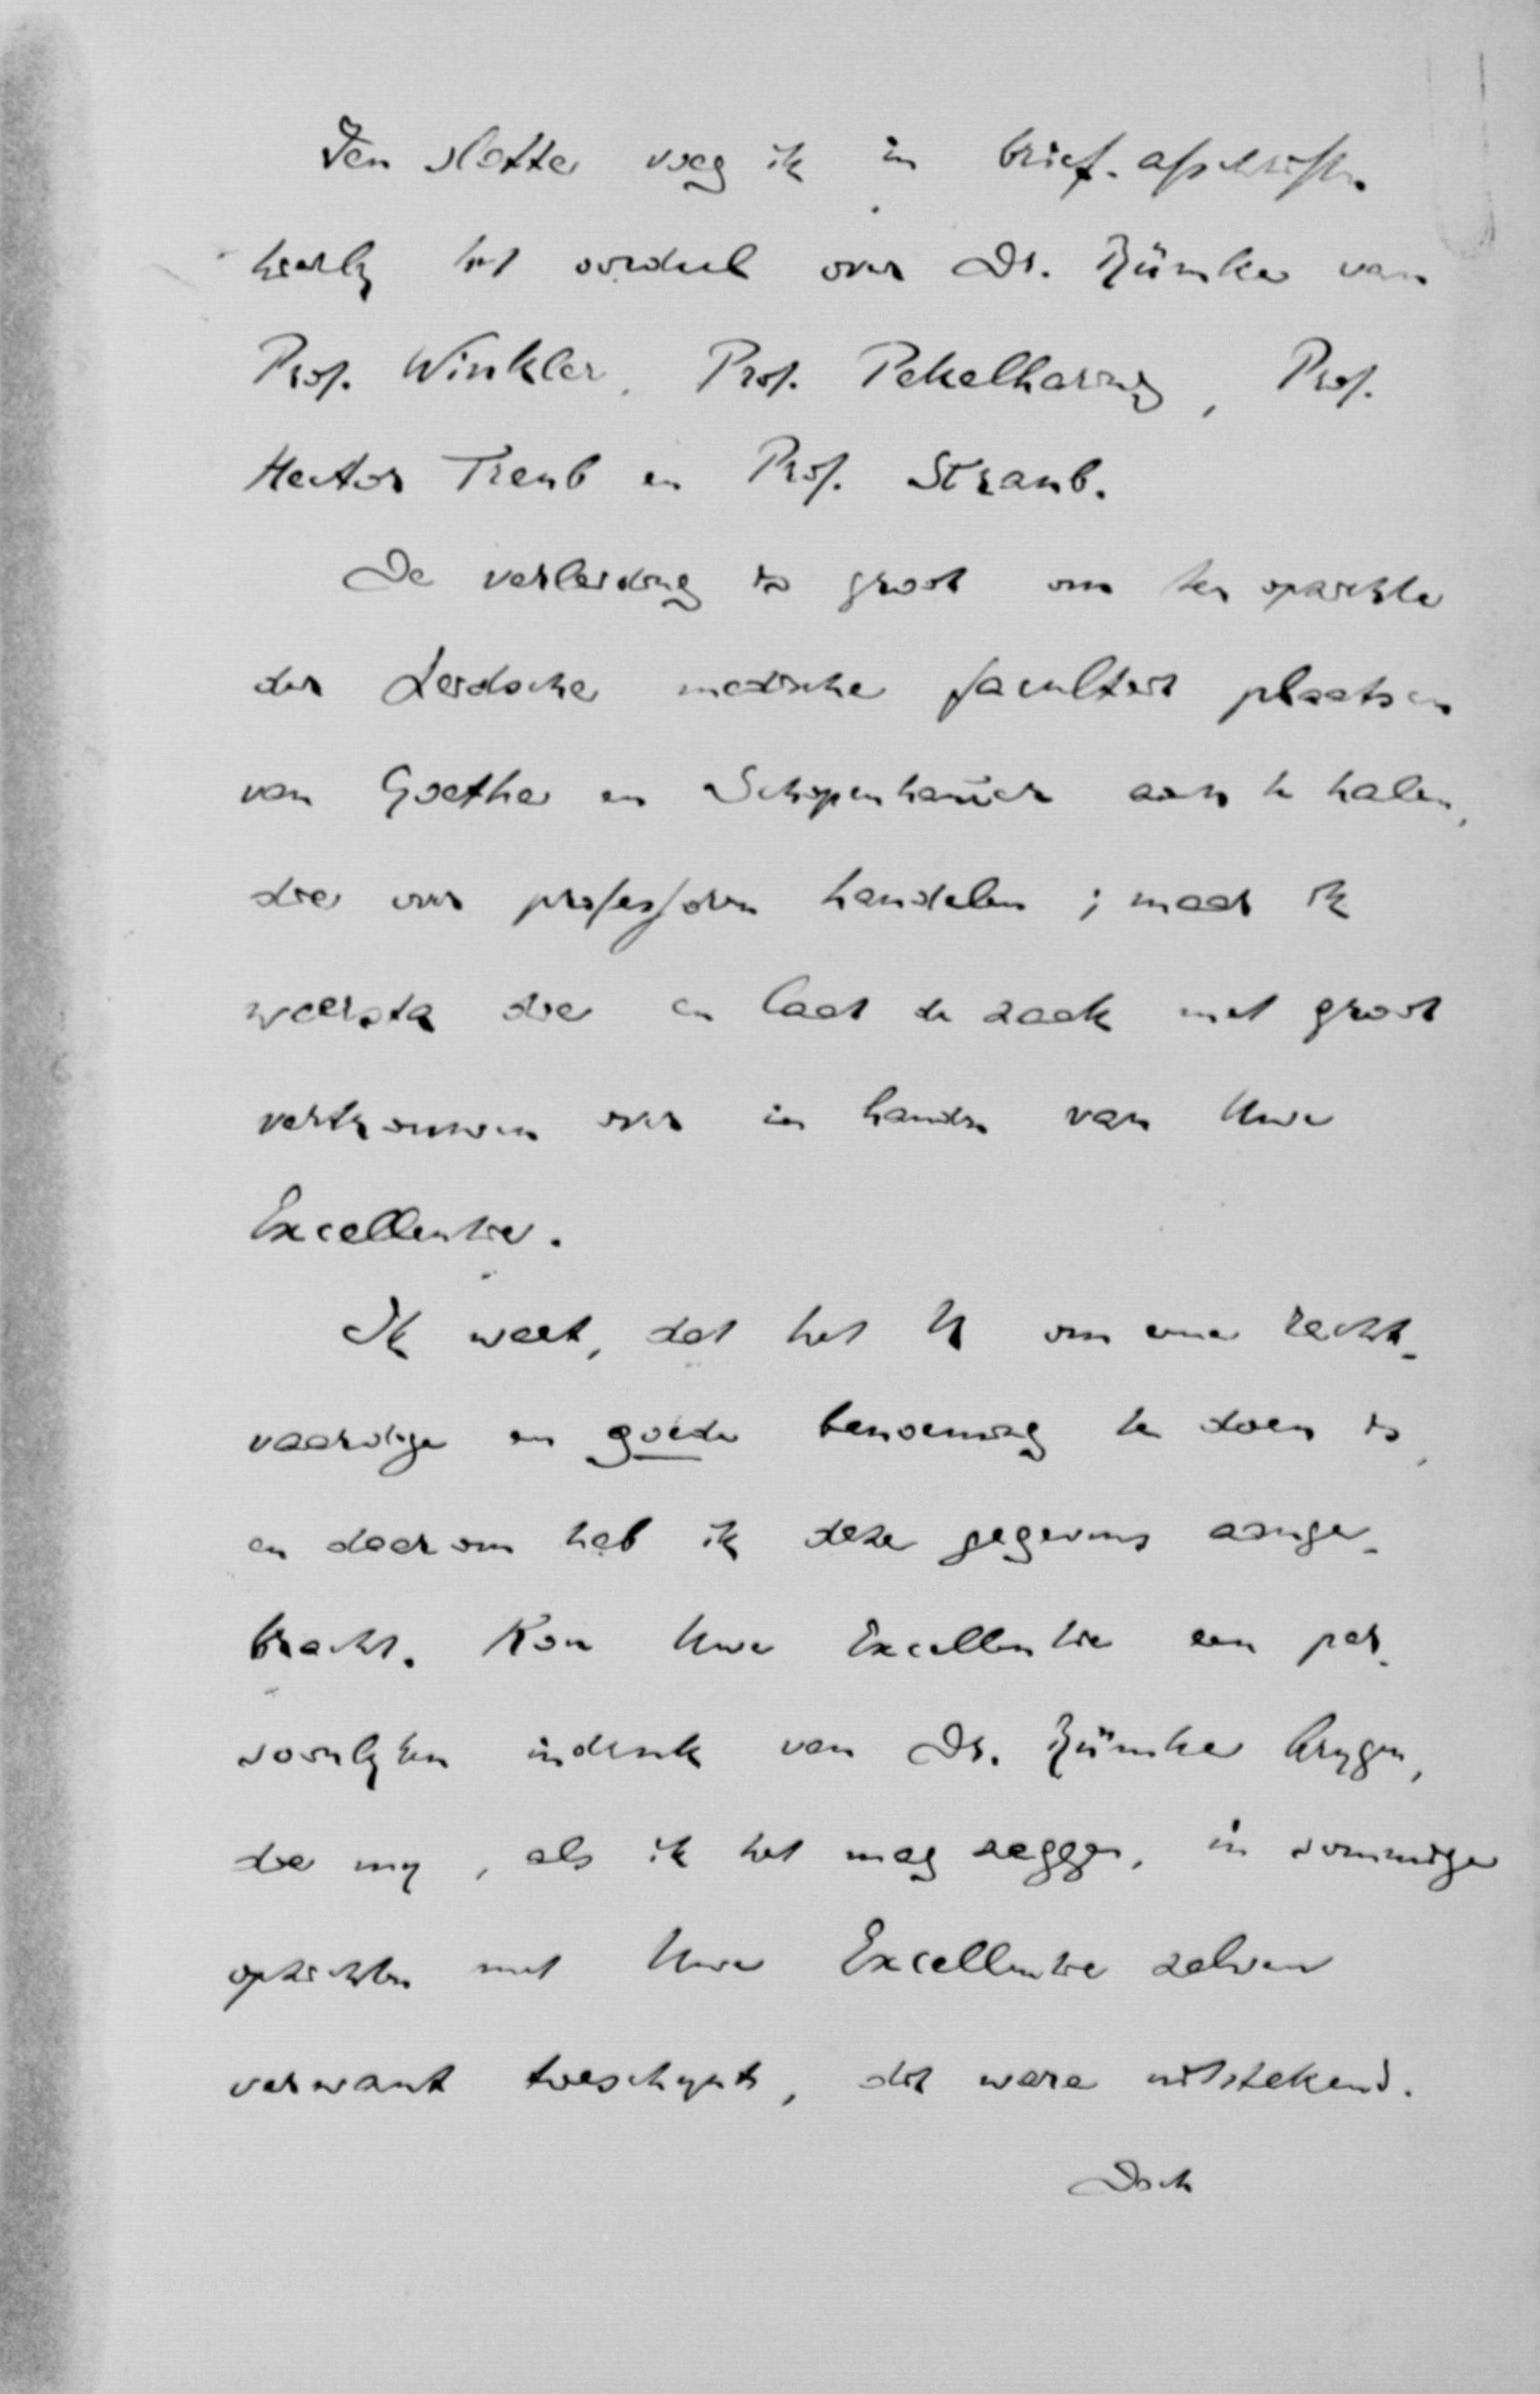 Ten slotte voeg ik in brief-afschriften
hierbij het oordeel over Dr. Rümke van
Prof. Winkler, Prof. Pekelharing, Prof.
Hector Treub en Prof. Straub.
De verleiding is groot om ten opzichte
der Leidsche medische faculteit plaatsen
van Goethe en Schopenhauer aan te halen,
die over professoren handelen; maar ik
weersta die en laat de zaak met groot
vertrouwen over in handen van Uwe
Excellentie.
Ik weet, dat het U om eene recht-
vaardige en goede benoeming te doen is,
en daarom heb ik deze gegevens aange-
bracht. Kon Uwe Excellentie een per-
soonlijken indruk van Dr. Rümke krijgen,
die mij, als ik het mag zeggen, in sommige
opzichten met Uwe Excellentie zelven
verwant toeschijnt, dit ware uitstekend.
Doch